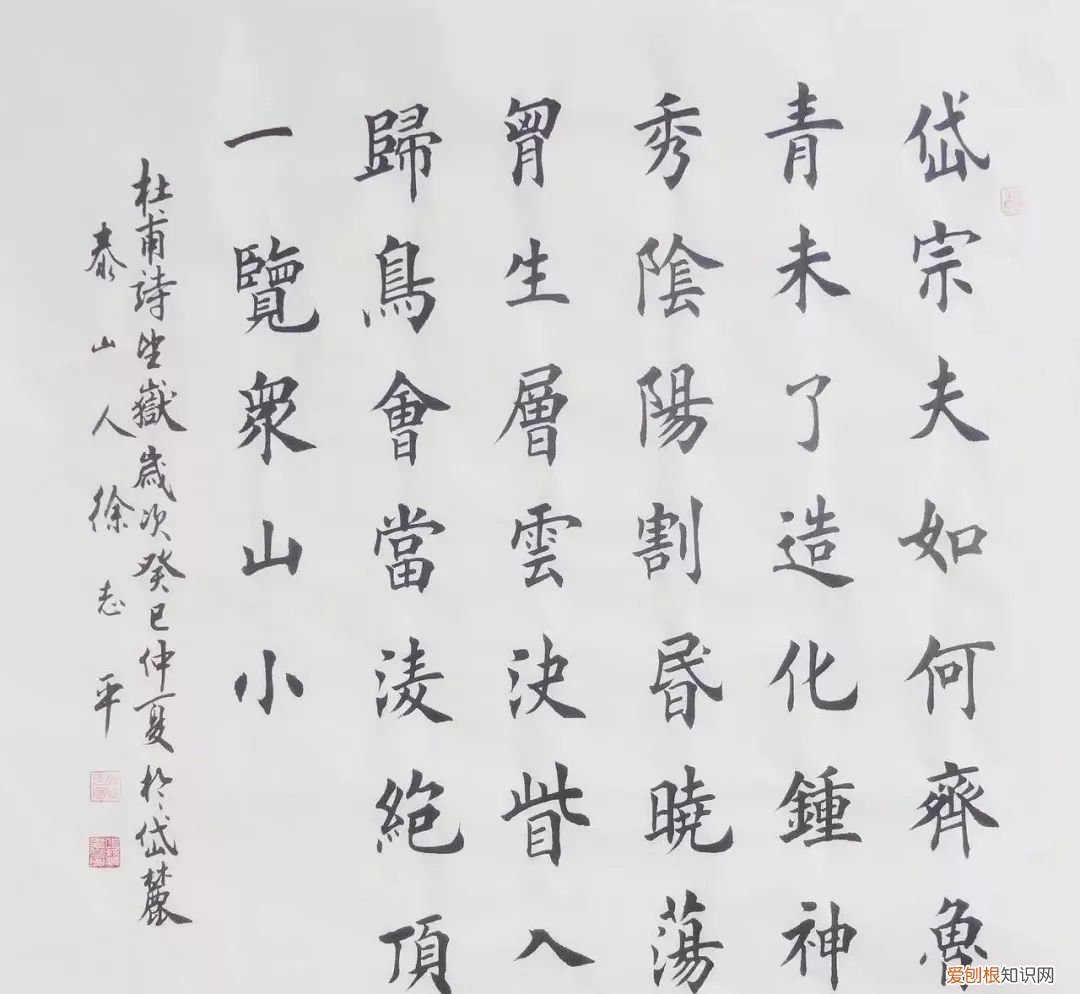 岱宗夫如何齊魯
青未了造化鍾神
秀陰陽割昬曉蕩
胷生層雲決眥入
歸鳥會當淩絶頂
一覽衆山小
杜甫詩望嶽歲次癸巳仲夏於岱麓
泰山人徐志平
爱刨根知识网
www.baogenzhishi.com